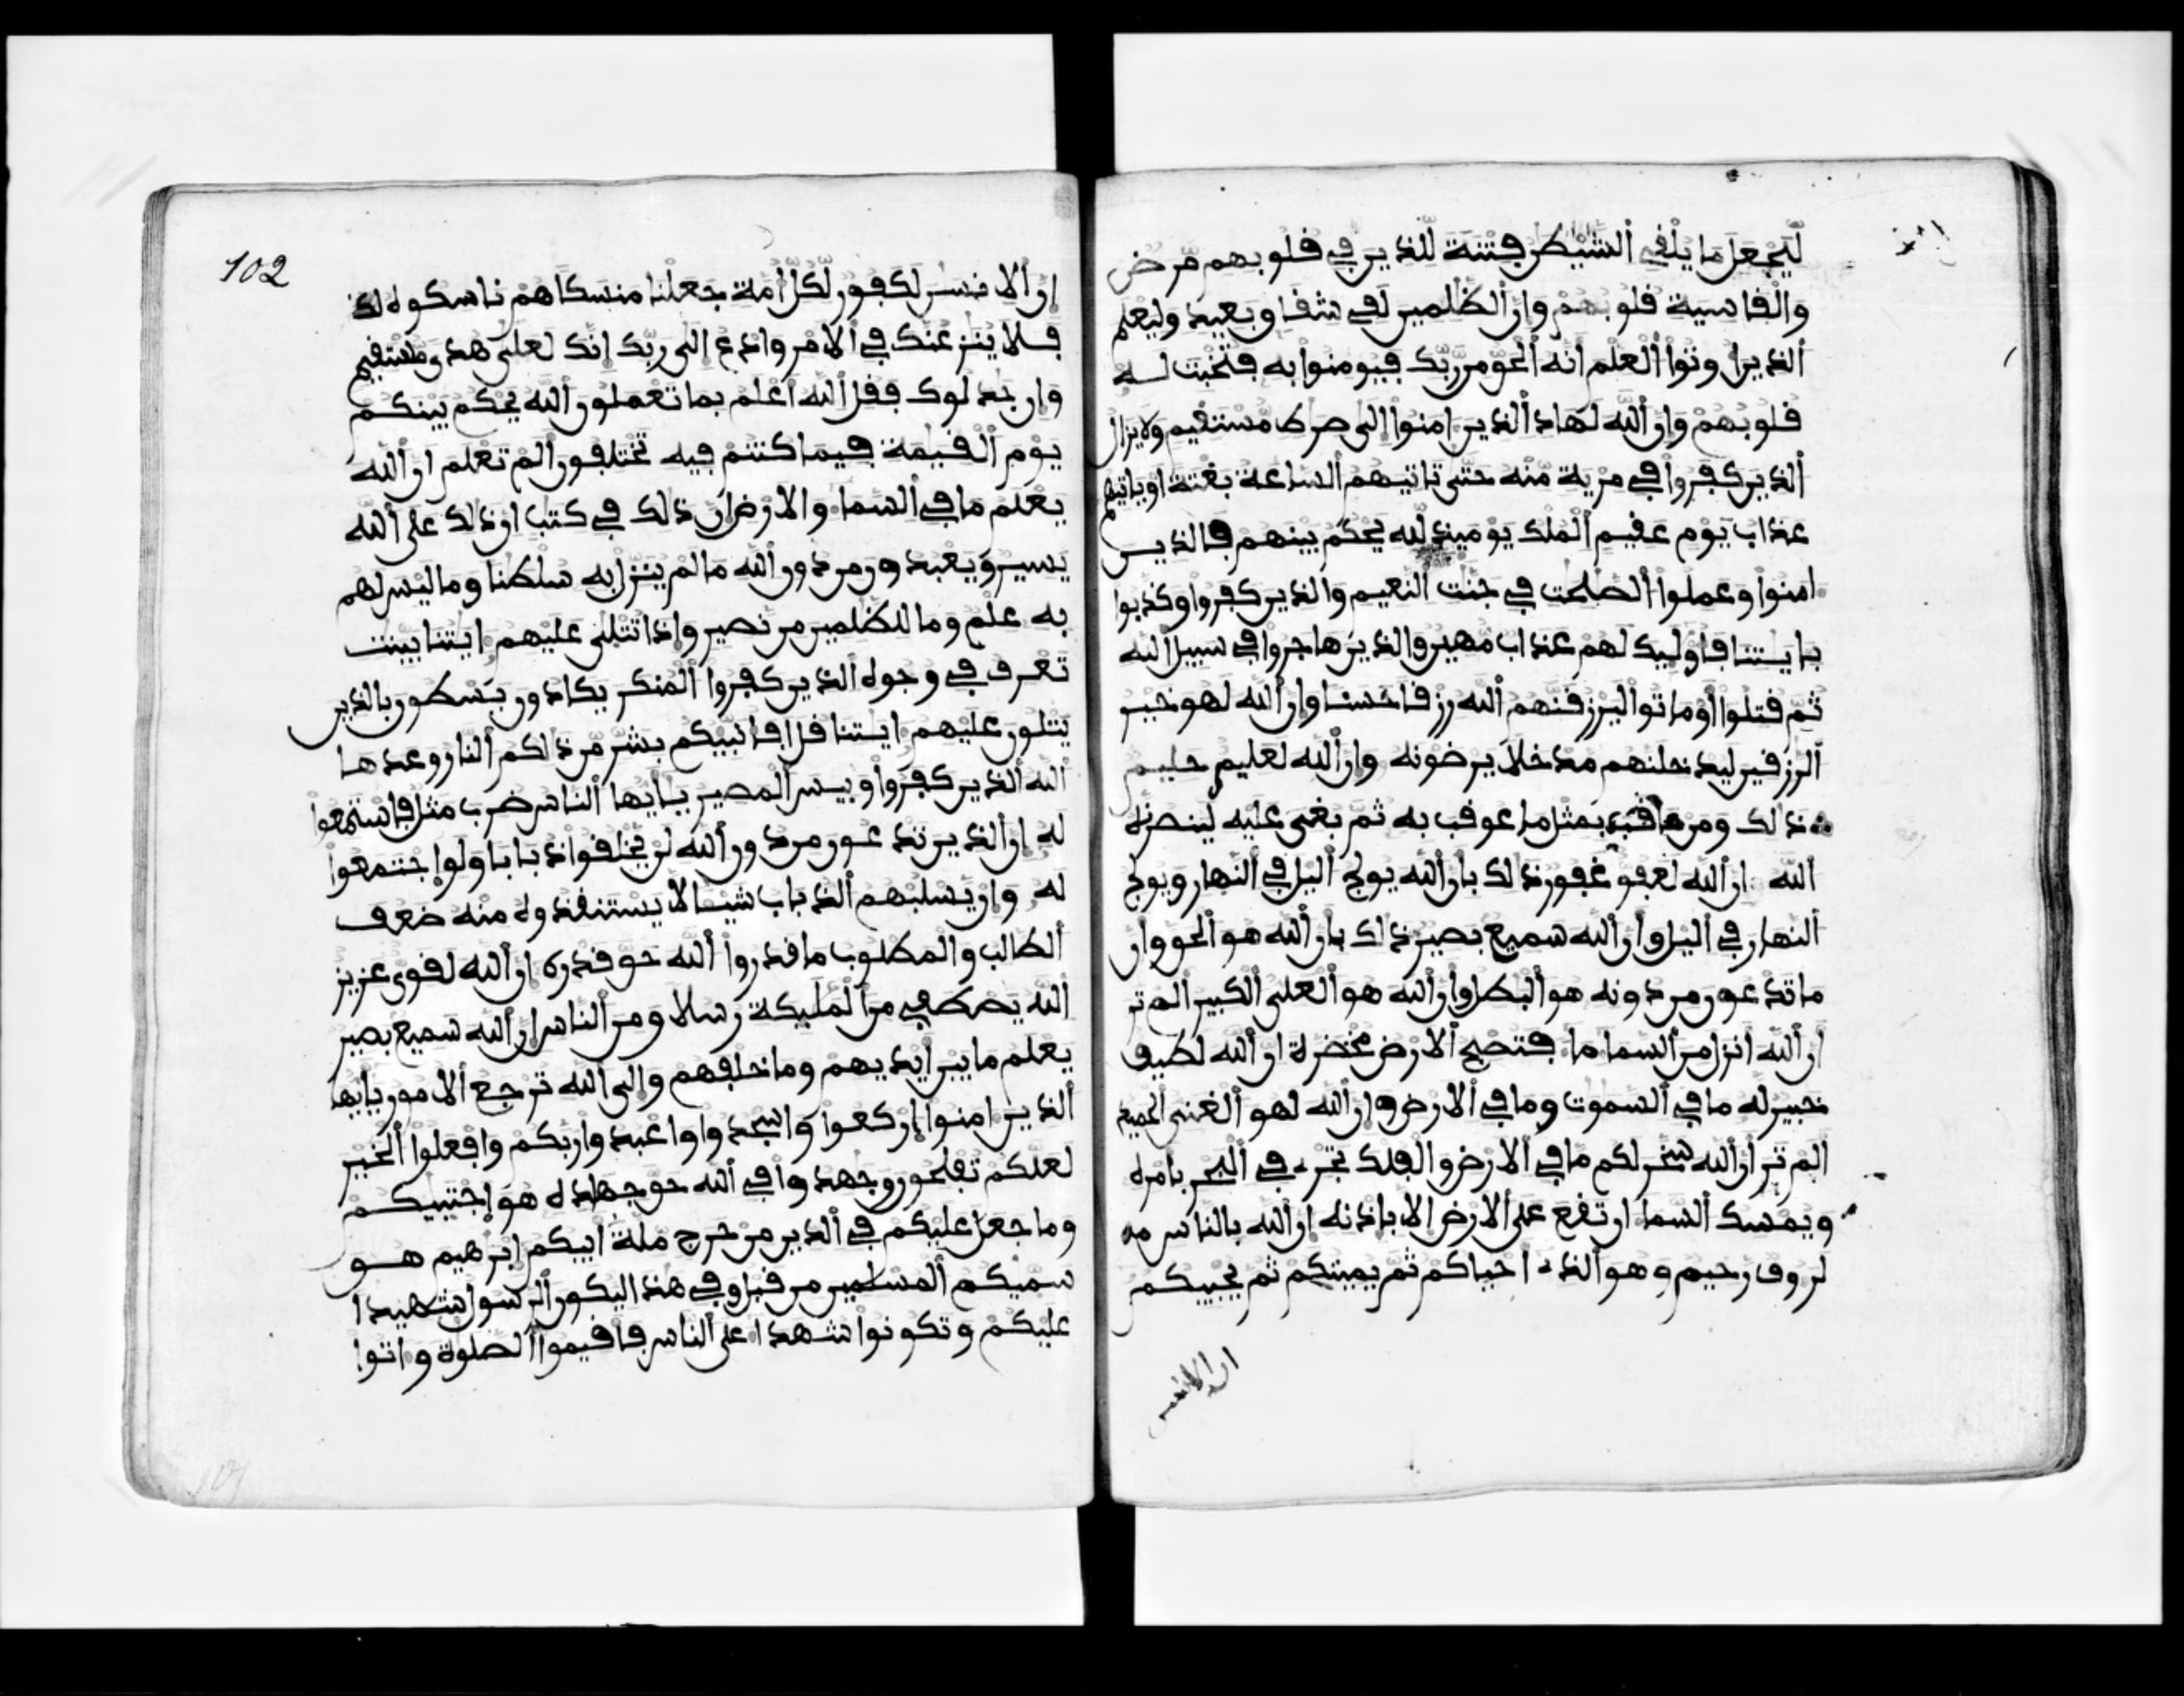 ليجعل ما يلقى الشيطن فتنة للذين في قلوبهم مرض
والقاسية قلوبهم وان الظلمين لفي شقاق بعيد وليعلم
الذين اوتوا العلم انه الحق من ربك فيومنوا به فتخبت له
قلوبهم وان الله لهاد الذين امنوا الى صرط مستقيم ولا يزال
الذين كفروا في مرية منه حتى تاتيهم الساعة بغتة او ياتيهم
عذاب يوم عقيم الملك يوميذ لله يحكم بينهم فالذين
امنوا وعملوا الصلحت في جنت النعيم والذين كفروا وكذبوا
بايتنا فاوليك لهم عذاب مهين والذين هاجروا في سبيل الله
ثم قتلوا او ماتوا ليرزقنهم الله رزقا حسنا وان الله لهو خير
الرزقين ليدخلنهم مدخلا يرضونه وان الله لعليم حليم
ذلك ومن عاقب بمثل ما عوقب به ثم بغى عليه لينصرنه
الله ان الله لعفو غفور ذلك بان الله يولج اليل في النهار ويولج
النهار في اليل وان الله سميع بصير ذلك بان الله هو الحق وان
ما تدعون من دونه هو البطل وان الله هو العلى الكبير الم تر
ان الله انزل من السما ما فتصبح الارض مخضرة ان الله لطيف
خبير له ما في السموت وما في الارض وان الله لهو الغنى الحميد
الم تر ان الله سخر لكم ما في الارض والفلك تجرى في البحر بامره
ويمسك السما ان تقع على الارض الا باذنه ان الله بالناس
لروف رحيم وهو الذى احياكم ثم يميتكم ثم يحييكم
ان الانسن
102
ان الانسن لكفور لكل امة جعلنا منسكا هم ناسكوه
فلا ينزعنك في الامر وادع الى ربك انك لعلى هدى مستقيم
وان جدلوك فقل الله اعلم بما تعملون الله يحكم بينكم
يوم القيمة فيما كنتم فيه تختلفون الم تعلم ان الله
يعلم ما في السما والارض ان ذلك في كتب ان ذلك على الله
يسير ويعبدون من دون الله ما لم ينزل به سلطنا وما ليس لهم
به علم وما للظلمين من نصير واذا تتلى عليهم ايتنا بينت
تعرف في وجوه الذين كفروا المنكر يكادون يسطون بالذين
يتلون عليهم ايتنا قل افانبيكم بشر من ذلكم النار وعدها
الله الذين كفروا وبيس المصير يايها الناس ضرب مثل فاستمعوا
له ان الذين تدعون من دون الله لن يخلقوا ذبابا ولو اجتمعوا
له وان يسلبهم الذباب شيا لا يستنقذوه منه ضعف
الطالب والمطلوب ما قدروا الله حق قدره ان الله لقوى عزيز
الله يصطفى من المليكة رسلا ومن الناس ان الله سميع بصير
يعلم ما بين ايديهم وما خلفهم والى الله ترجع الامور يايها
الذين امنوا اركعوا واسجدوا واعبدوا ربكم وافعلوا الخير
لعلكم تفلحون وجهدوا في الله حق جهاده هو اجتبيكم
وما جعل عليكم في الدين من حرج ملة ابيكم ابرهيم هو
سميكم المسلمين من قبل وفي هذا ليكون الرسول شهيدا
عليكم وتكونوا شهدا على الناس فاقيموا الصلوة واتوا